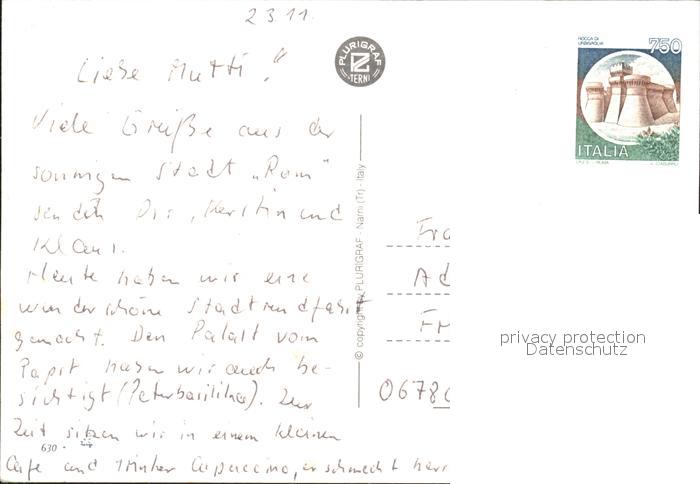 23.11.
Liebe Mutti!"
Viele Grüße aus der
sonnigen Stadt „Rom"
senden Dir, Kerstin und
Klaus.
Heute haben wir eine
wunderschöne Stadtrundfahrt
gemacht. Den Palast vom
Papst haben wir auch be-
sichtigt (Petersbasilika). Zur
Zeit sitzen wir in einem kleinen
Cafe und trinken Capuccino, er schmeckt herr
630
PLURIGRAF
TERNI
© copyright by PLURIGRAF - Narni (Tr) - Italy
ROCCA DI
URBISAGLIA
750
ITALIA
I.P.Z.S. - ROMA
Fra
Ad
0678
privacy protection
Datenschutz